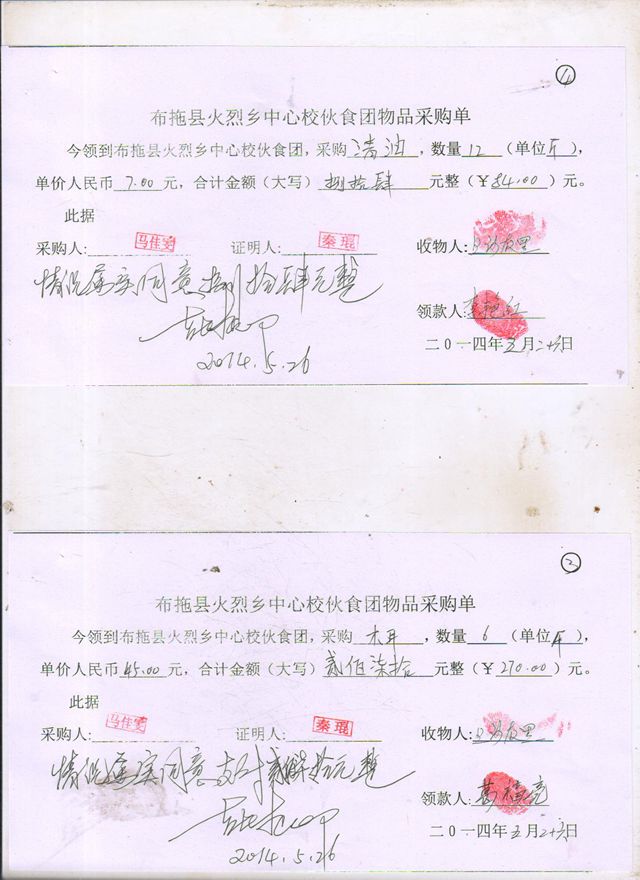 布拖县火烈乡中心校伙食团物品采购单
今领到布拖县火烈乡中心校伙食团，采购 清油 ，数量 12 （单位斤），
单价人民币 7.00 元，合计金额（大写） 捌拾肆 元整（￥84.00）元。
此据
采购人： 马佳雯 证明人： 秦琨 收物人：
情况属实同意 捌拾肆元整
领款人：
2014.5.26
二〇一四年五月二十六日
②
布拖县火烈乡中心校伙食团物品采购单
今领到布拖县火烈乡中心校伙食团，采购 木耳 ，数量 6 （单位斤），
单价人民币 45.00 元，合计金额（大写） 贰佰柒拾 元整（￥270.00）元。
此据
采购人： 马佳雯 证明人： 秦琨 收物人：
情况属实同意支付 拾元整
领款人：
二〇一四年五月二十六日
2014.5.26